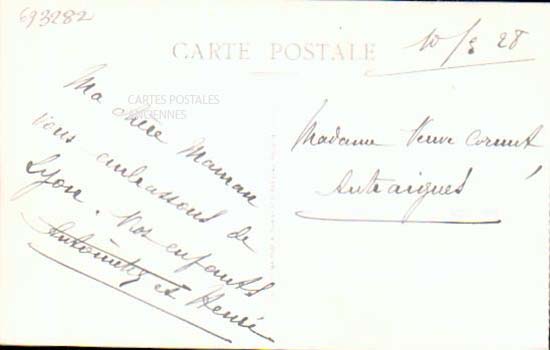 693282
CARTE POSTALE
10/8 28
CARTES POSTALES
ANCIENNES
Ma chère Maman
Vous embrassons de
Lyon. Vos enfants
Antoinette et Henri
Madame Veuve Cornut
Antraigues